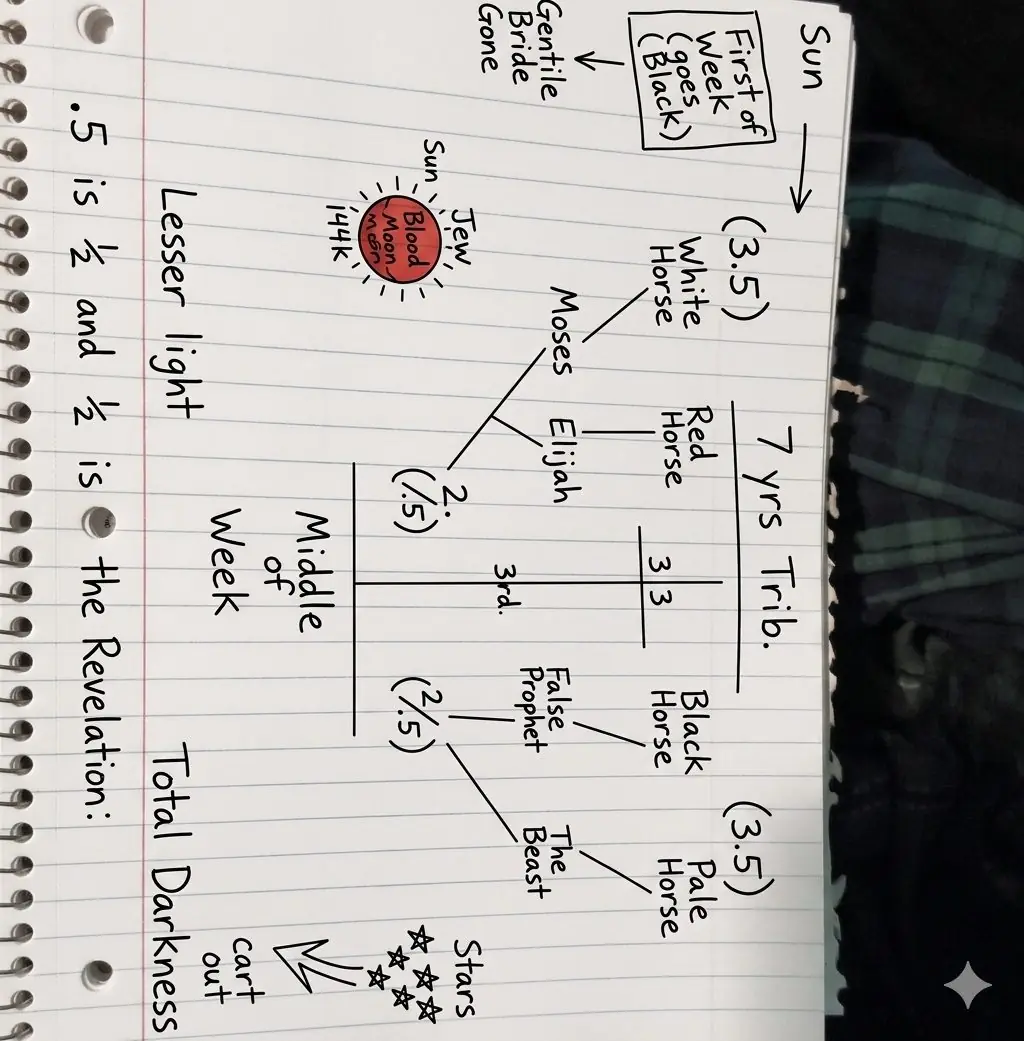 Sun
First of
Week
(goes
(Black)
Gentile
Bride
Gone
7 yrs Trib.
(3.5)
White
Horse
Red
Horse
3 3
Black
Horse
(3.5)
Pale
Horse
Moses
Elijah
3rd.
False
Prophet
The
Beast
2.
(/.5)
(2/.5)
Jew
Sun
Blood
Moon
Moon
144k
Middle
of
Week
Stars
cart
out
Lesser light
Total Darkness
.5 is ½ and ½ is the Revelation: